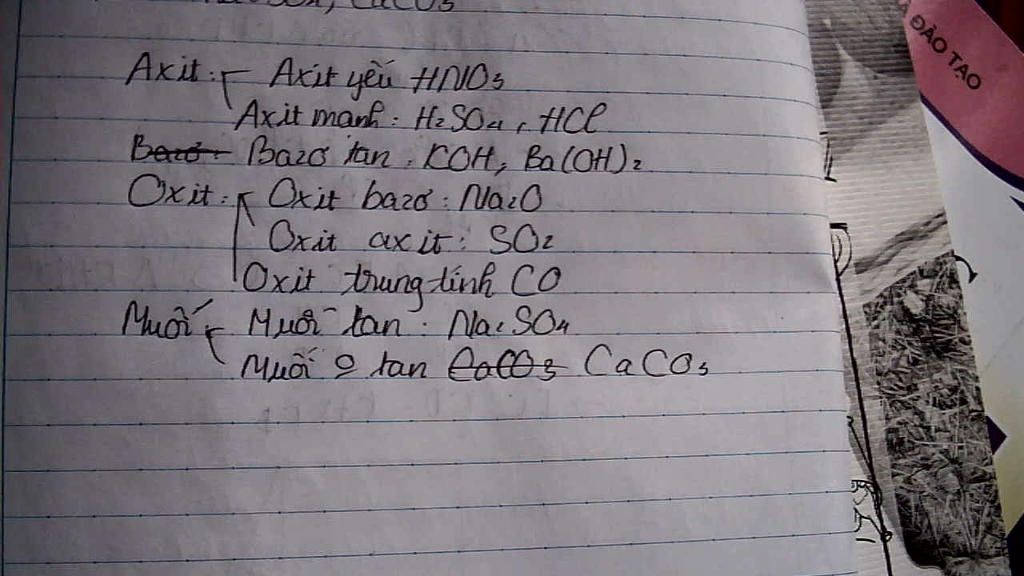 CaCO3
Axit: Axit yếu HNO3
Axit mạnh: H2SO4, HCl
Bazơ: Bazơ tan: KOH, Ba(OH)2
Oxit: Oxit bazơ: Na2O
Oxit axit: SO2
Oxit trung tính CO
Muối Muối tan: Na2SO4
Muối o tan CaCO3 CaCO3
ĐÀO TẠO